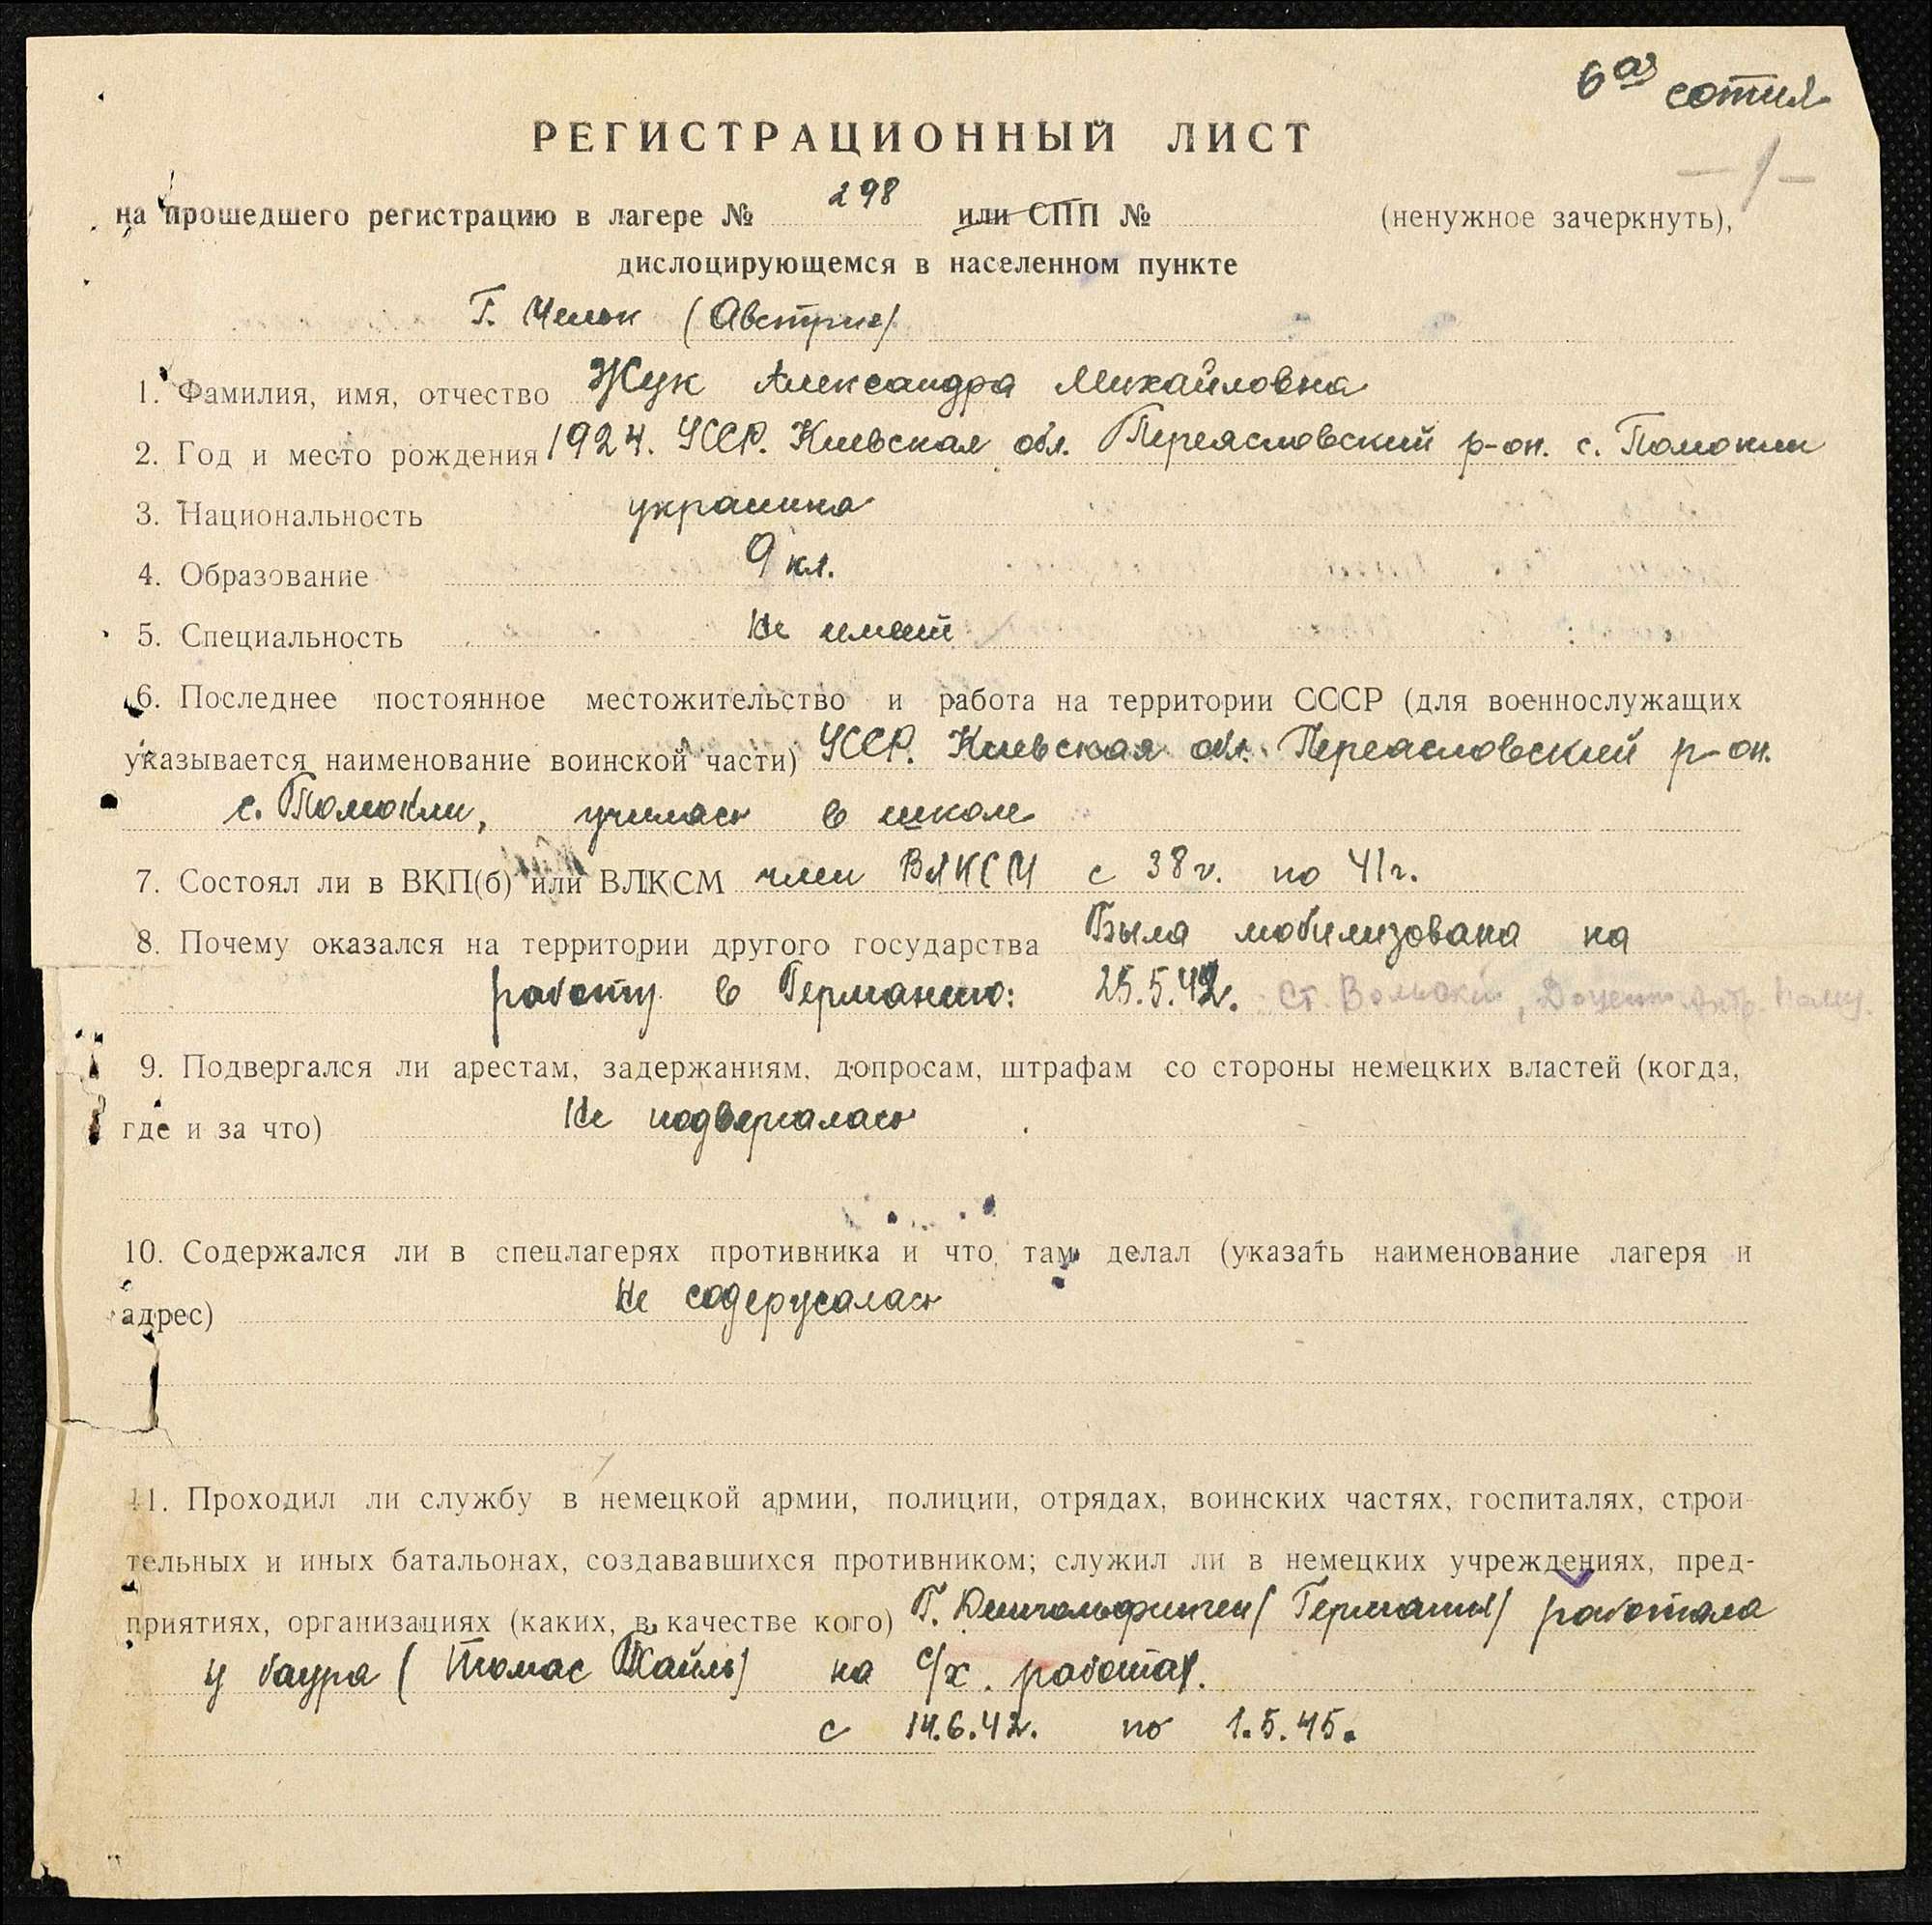 6ая сотня
— / —
РЕГИСТРАЦИОННЫЙ ЛИСТ
на прошедшего регистрацию в лагере № 298 или СПП № (ненужное зачеркнуть),
дислоцирующемся в населенном пункте
г. Мельк (Австрия)
1. Фамилия, имя, отчество Жук Александра Михайловна
2. Год и место рождения 1924. УССР. Киевская обл. Переясловский р-он. с. Помокли
3. Национальность украинка
4. Образование 9 кл.
5. Специальность Не имеет
6. Последнее постоянное местожительство и работа на территории СССР (для военнослужащих
указывается наименование воинской части) УССР. Киевская обл. Переасловский р-он.
с. Помокли, училась в школе
7. Состоял ли в ВКП(б) или ВЛКСМ член ВЛКСМ с 38 г. по 41 г.
8. Почему оказался на территории другого государства Была мобилизована на
работу в Германию: 25.5.42. Ст.
9. Подвергался ли арестам, задержаниям, допросам, штрафам со стороны немецких властей (когда,
где и за что) Не подвергалась
10. Содержался ли в спецлагерях противника и что там делал (указать наименование лагеря и
адрес) Не содержалась
11. Проходил ли службу в немецкой армии, полиции, отрядах, воинских частях, госпиталях, строи-
тельных и иных батальонах, создававшихся противником; служил ли в немецких учреждениях, пред-
приятиях, организациях (каких, в качестве кого) Г. Дингольфинген (Германия) работала
у баура (Томас Хайль) на с/х. работах.
с 14.6.42. по 1.5.45.